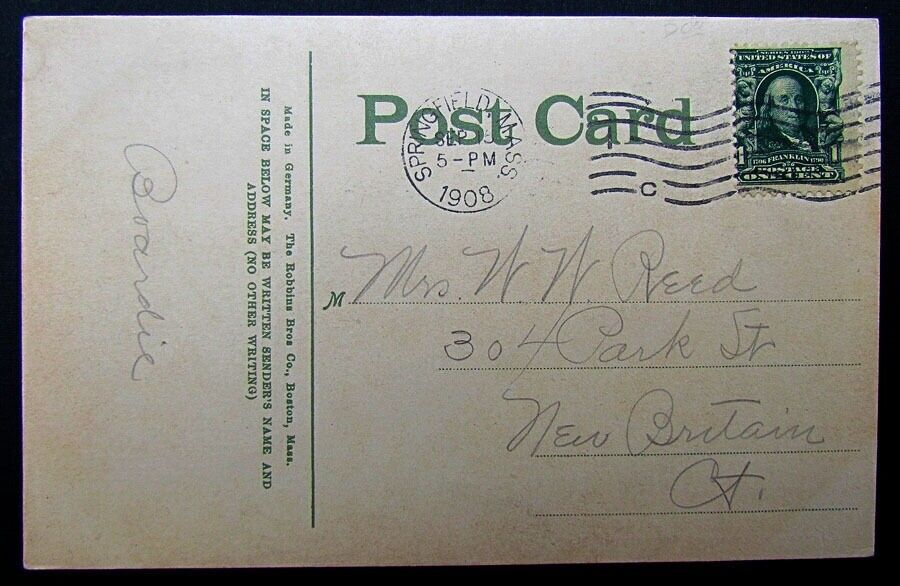 Post Card
SPRINGFIELD, MASS.
SEP
5-PM
1908
C
SERIES 1902
UNITED STATES OF
AMERICA
1706 FRANKLIN 1790
1 POSTAGE 1
ONE CENT
Made in Germany. The Robbins Bros Co., Boston, Mass.
IN SPACE BELOW MAY BE WRITTEN SENDER'S NAME AND
ADDRESS (NO OTHER WRITING)
M Mrs. W. W. Reed
304 Park St
New Britain
Ct.